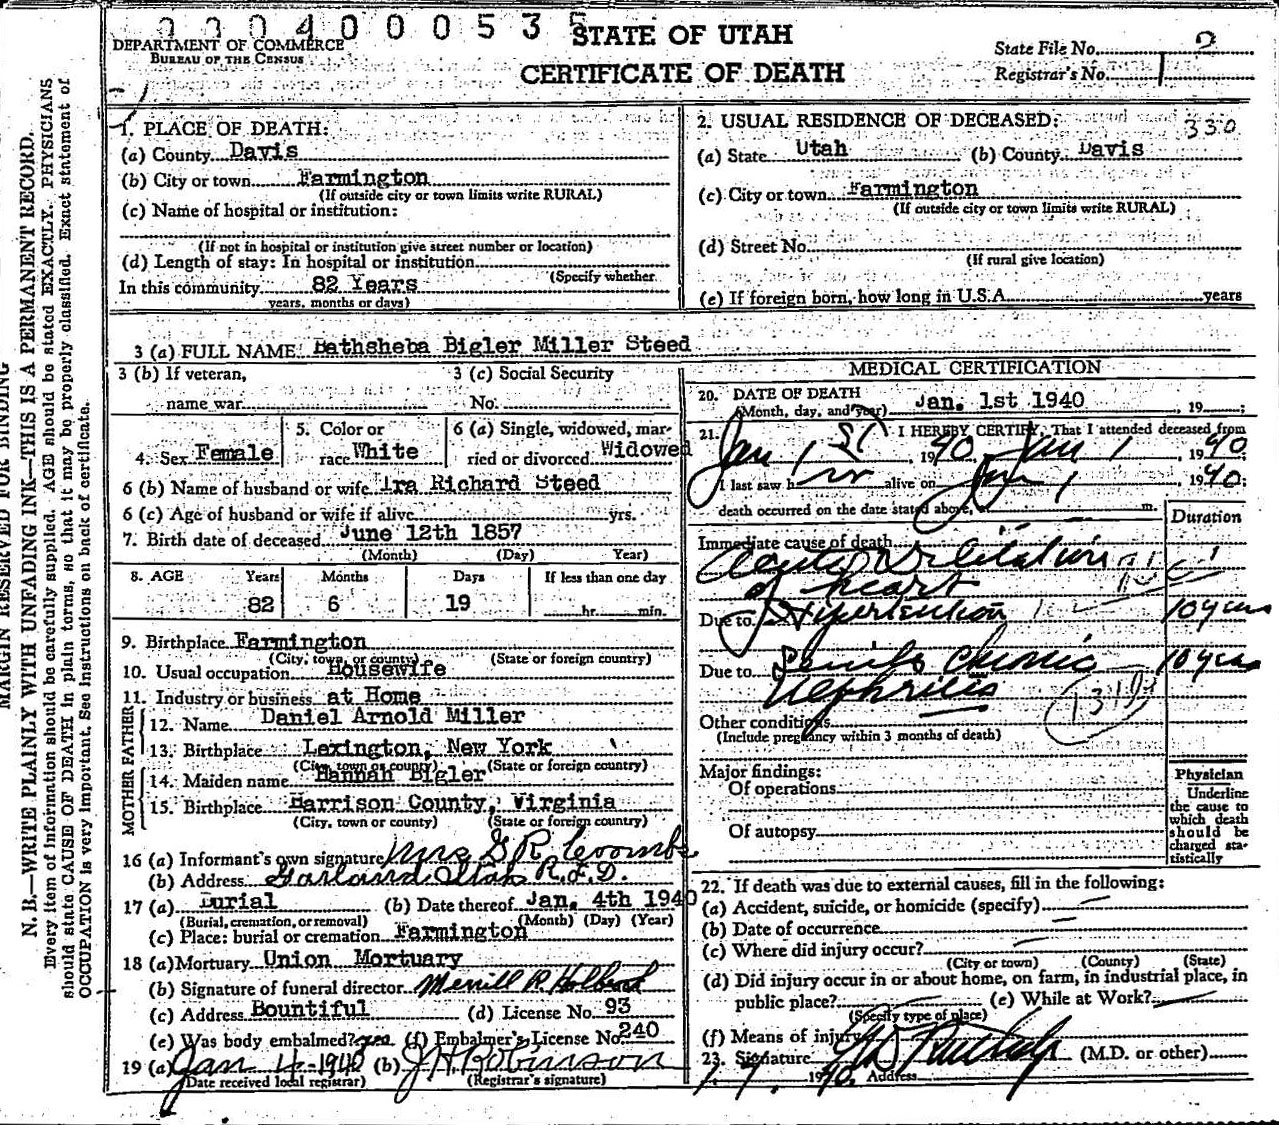 STATE OF UTAH
DEPARTMENT OF COMMERCE
BUREAU OF THE CENSUS
CERTIFICATE OF DEATH
State File No. 2
Registrar's No. 1
MARGIN RESERVED FOR BINDING
N. B.—WRITE PLAINLY WITH UNFADING INK—THIS IS A PERMANENT RECORD.
Every item of information should be carefully supplied. AGE should be stated EXACTLY. PHYSICIANS
should state CAUSE OF DEATH in plain terms, so that it may be properly classified. Exact statement of
OCCUPATION is very important. See instructions on back of certificate.
1. PLACE OF DEATH:
(a) County Davis
(b) City or town Farmington
(If outside city or town limits write RURAL)
(c) Name of hospital or institution:
(If not in hospital or institution give street number or location)
(d) Length of stay: In hospital or institution
(Specify whether
In this community 82 Years
years, months or days)
2. USUAL RESIDENCE OF DECEASED:
330
(a) State Utah (b) County Davis
(c) City or town Farmington
(If outside city or town limits write RURAL)
(d) Street No.
(If rural give location)
(e) If foreign born, how long in U.S.A. years
3 (a) FULL NAME Bathsheba Bigler Miller Steed
3 (b) If veteran, 3 (c) Social Security
name war No.
4. Sex Female 5. Color or race White 6 (a) Single, widowed, married or divorced Widowed
6 (b) Name of husband or wife Ira Richard Steed
6 (c) Age of husband or wife if alive yrs.
7. Birth date of deceased June 12th 1857
(Month) (Day) Year)
8. AGE Years Months Days If less than one day
82 6 19 hr. min.
9. Birthplace Farmington
(City, town, or county) (State or foreign country)
10. Usual occupation Housewife
11. Industry or business at Home
FATHER
12. Name Daniel Arnold Miller
13. Birthplace Lexington, New York
(City, town or county) (State or foreign country)
MOTHER
14. Maiden name Hannah Bigler
15. Birthplace Harrison County, Virginia
(City, town or county) (State or foreign country)
16 (a) Informant's own signature Mrs G R Coombs
(b) Address Garland Utah R.F.D.
17 (a) Burial (b) Date thereof Jan. 4th 1940
(Burial, cremation, or removal) (Month) (Day) (Year)
(c) Place: burial or cremation Farmington
18 (a) Mortuary Union Mortuary
(b) Signature of funeral director Merrill R Holbrook
(c) Address Bountiful (d) License No. 93
(e) Was body embalmed? yes (f) Embalmer's License No. 240
19 (a) Jan 4-1940 (b) J H Robinson
(Date received local registrar) (Registrar's signature)
MEDICAL CERTIFICATION
20. DATE OF DEATH
(Month, day, and year) Jan. 1st 1940, 19 ;
21. I HEREBY CERTIFY, That I attended deceased from
Jan 1 st, 1940, Jan 1, 1940
I last saw h er alive on Jan 1, 1940;
death occurred on the date stated above, m.
Duration
Immediate cause of death
Acute Dilitation
of heart
Due to Hypertention 10 years
Due to Senile Chronic 10 years
Nephritis
131
Other conditions
(Include pregnancy within 3 months of death)
Major findings:
Of operations
Of autopsy
Physician
Underline
the cause to
which death
should be
charged sta-
tistically
22. If death was due to external causes, fill in the following:
(a) Accident, suicide, or homicide (specify)
(b) Date of occurrence
(c) Where did injury occur?
(City or town) (County) (State)
(d) Did injury occur in or about home, on farm, in industrial place, in
public place? (e) While at Work?
(Specify type of place)
(f) Means of injury
23. Signature (M.D. or other)
1940. Address